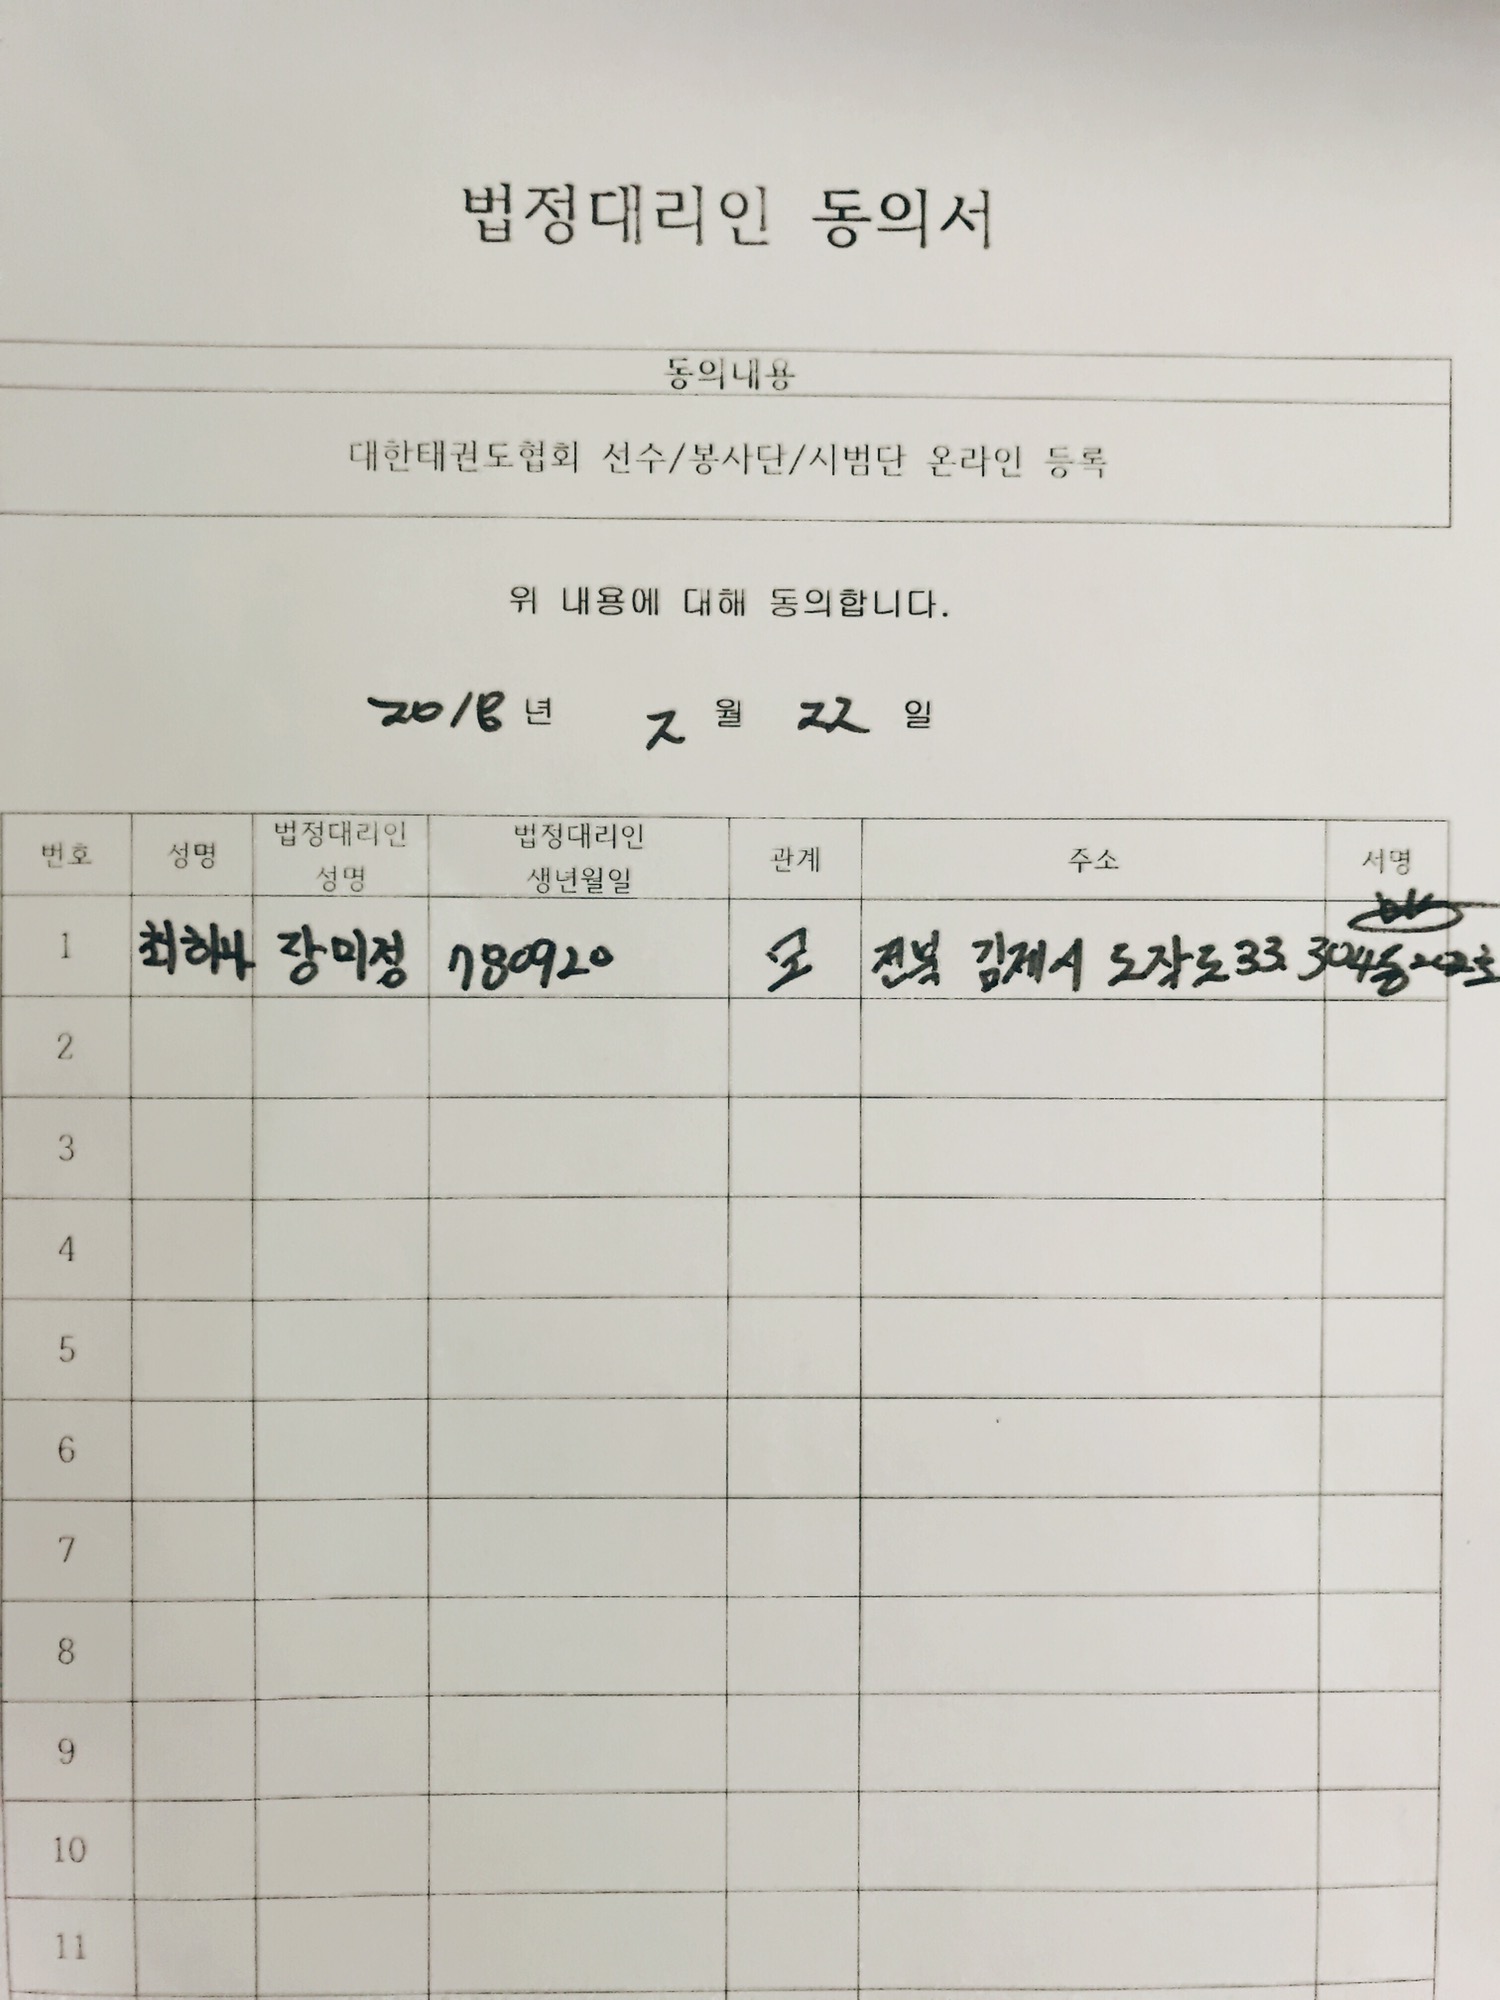 법정대리인 동의서
동의내용
대한태권도협회 선수/봉사단/시범단 온라인 등록
위 내용에 대해 동의합니다.
2018 년 2 월 22 일
번호 성명 법정대리인 성명 법정대리인 생년월일 관계 주소 서명
1 최하나 장미정 780920 모 전북 김제시 도작로33 304동202호
2
3
4
5
6
7
8
9
10
11